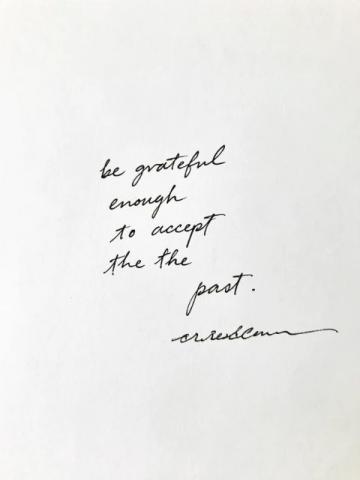 be grateful
enough
to accept
the the
past.